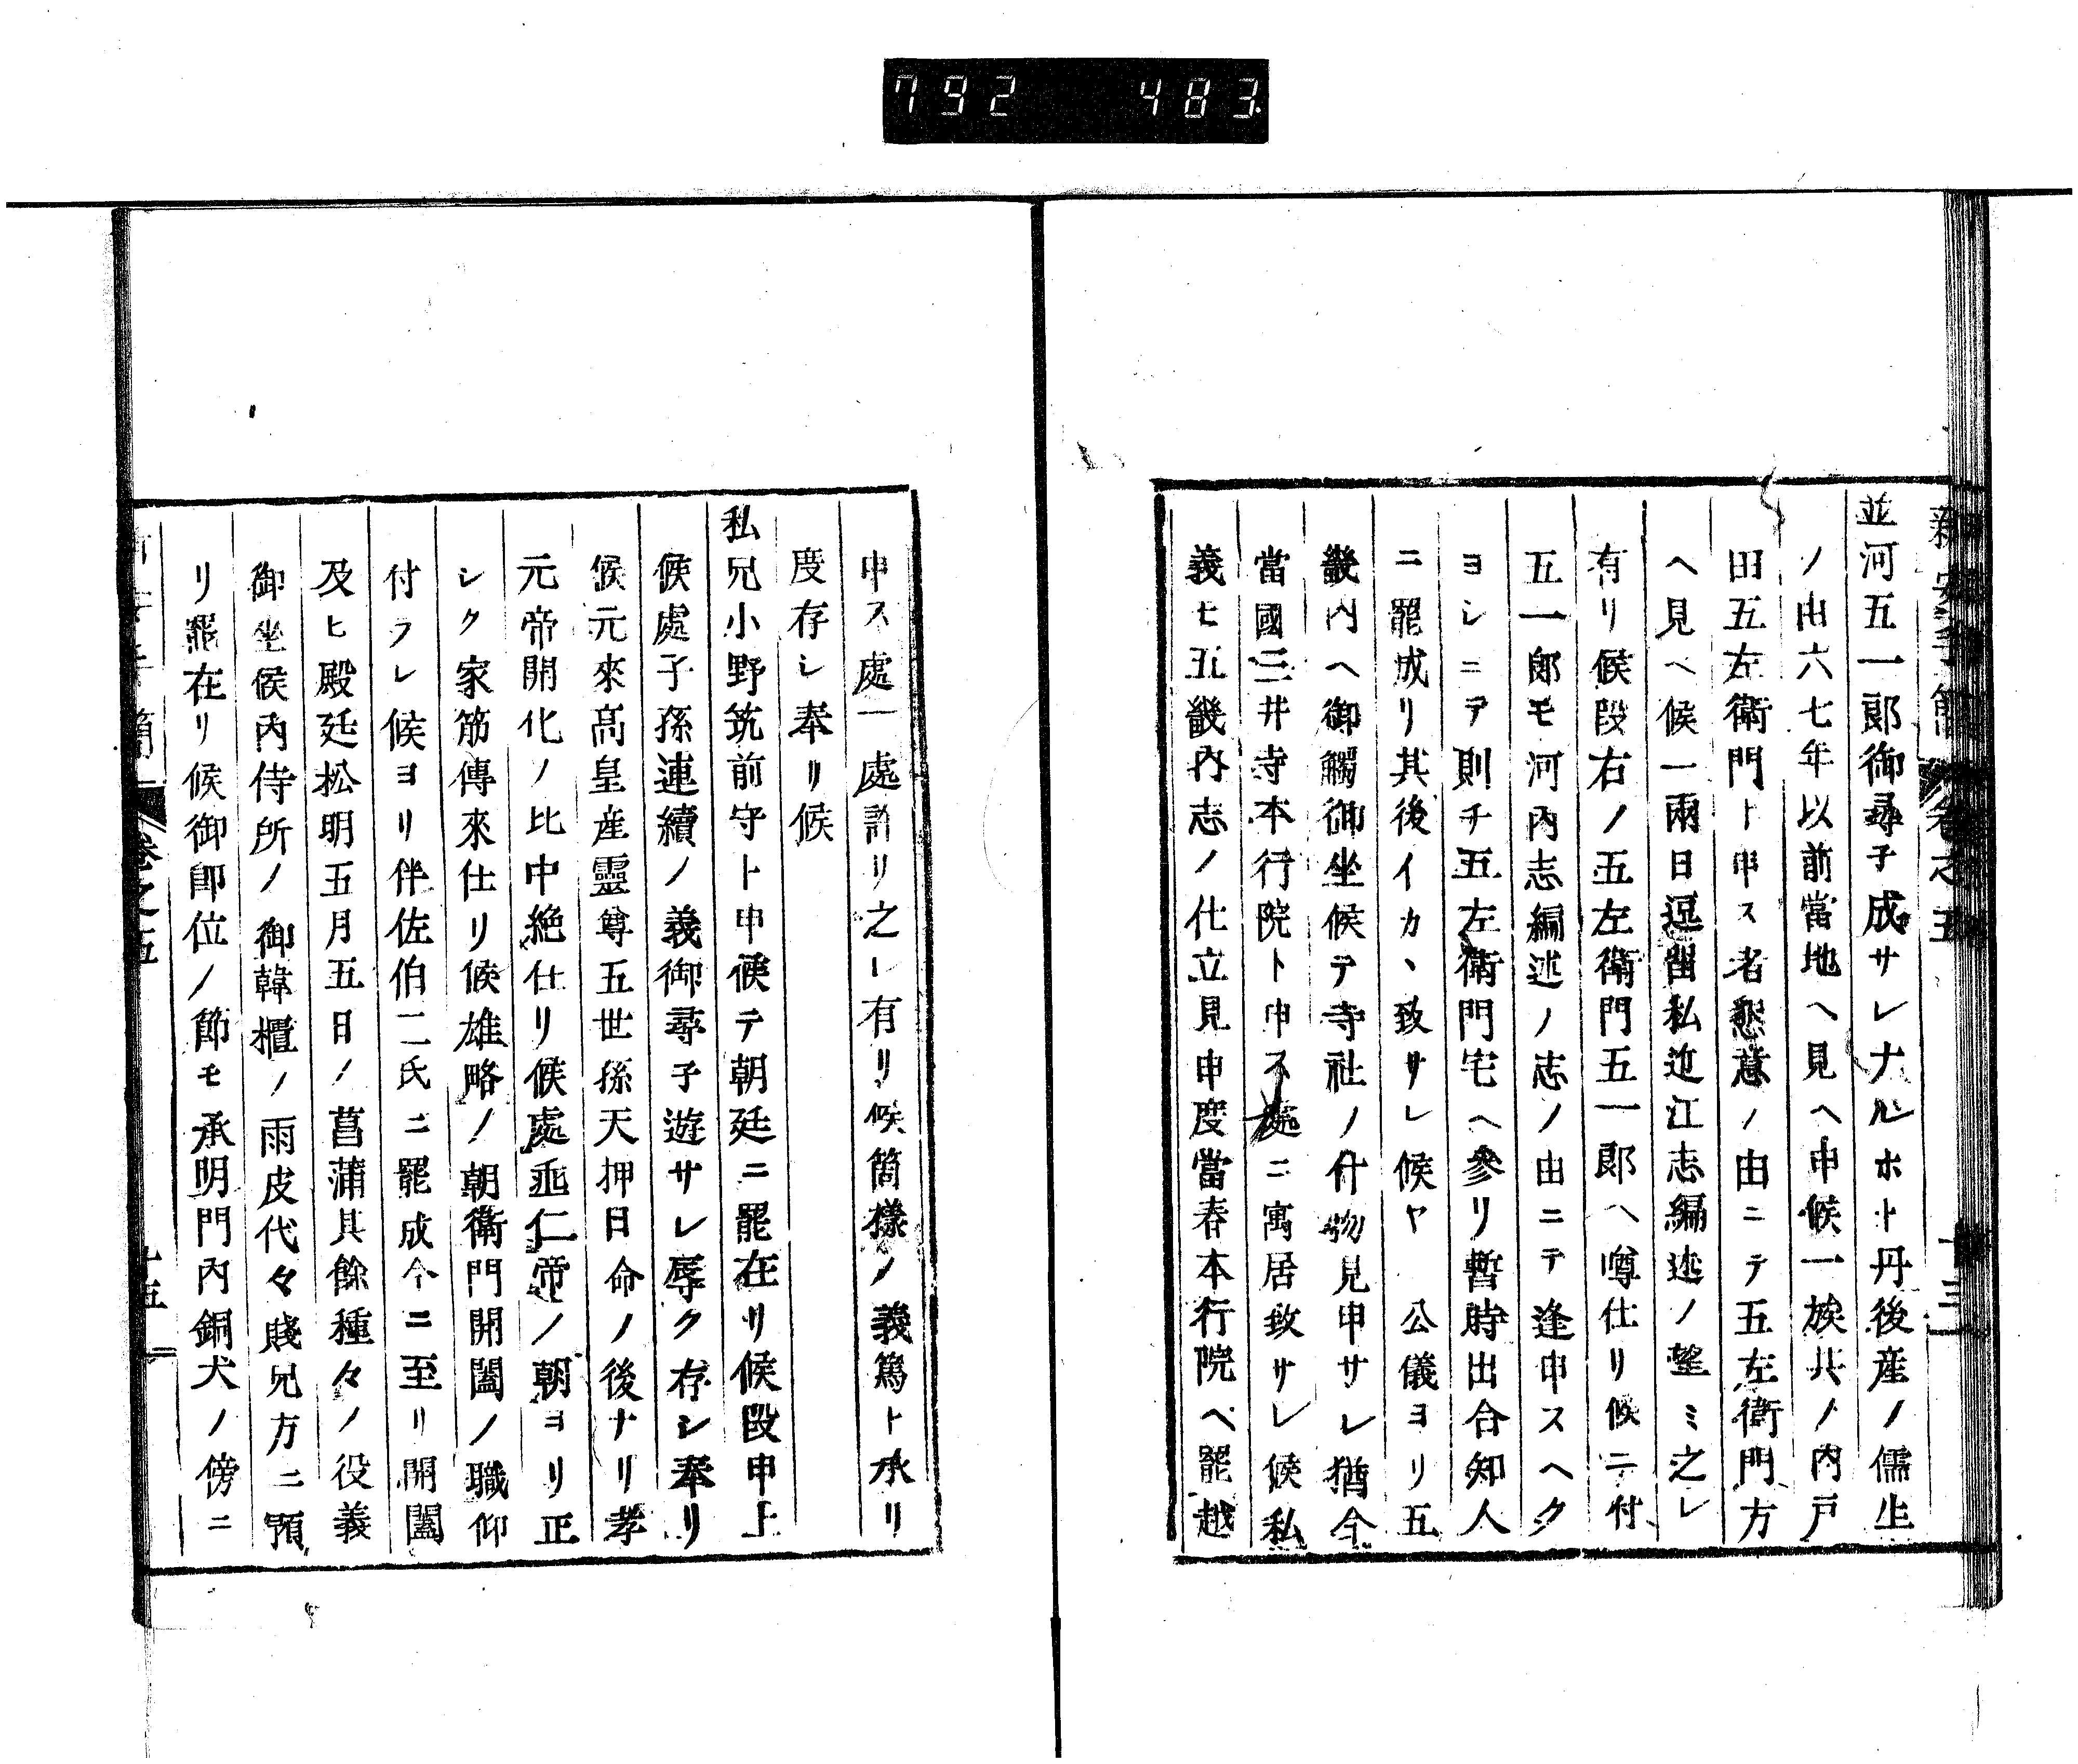 792 483
新安手簡 卷之五
並河五一郎御尋子成サレナルホト丹後産ノ儒生
ノ由六七年以前當地ヘ見ヘ申候一族共ノ内戸
田五左衛門ト申ス者懇意ノ由ニテ五左衛門方
ヘ見ヘ候一兩日逗留私近江志編述ノ望ミ之レ
有リ候段右ノ五左衛門五一郎ヘ噂仕リ候ニ付
五一郎モ河内志編述ノ志ノ由ニテ逢申スヘク
ヨシニテ則チ五左衛門宅ヘ參リ暫時出合知人
ニ罷成リ其後イカヽ致サレ候ヤ 公儀ヨリ五
畿内ヘ御觸御坐候テ寺社ノ什物見申サレ猶今
當國三井寺本行院ト申ス處ニ寓居致サレ候私
義モ五畿内志ノ仕立見申度當春本行院ヘ罷越
申ス處一處許リ之レ有リ候箇樣ノ義篤ト承リ
度存シ奉リ候
私兄小野筑前守ト申候テ朝廷ニ罷在リ候段申上
候處子孫連續ノ義御尋子遊サレ辱ク存シ奉リ
候元來髙皇産靈尊五世孫天押日命ノ後ナリ孝
元帝開化ノ比中絶仕リ候處垂仁帝ノ朝ヨリ正
シク家筋傳來仕リ候雄略ノ朝衛門開闔ノ職仰
付ラレ候ヨリ伴佐伯二氏ニ罷成今ニ至リ開闔
及ヒ殿廷松明五月五日ノ菖蒲其餘種々ノ役義
御坐候内侍所ノ御韓櫃ノ雨皮代々賤兄方ニ預
リ罷在リ候御即位ノ節モ承明門内銅犬ノ傍ニ
卷之五